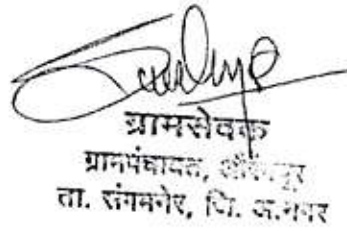 ग्रामसेवक
ग्रामपंचायत,
ता. संगमनेर, जि. अ.नगर